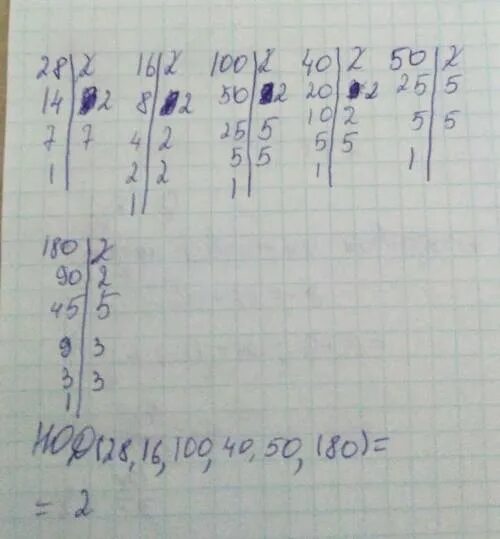 28 | 2 16 | 2 100 | 2 40 | 2 50 | 2
14 | 2 8 | 2 50 | 2 20 | 2 25 | 5
7 | 7 4 | 2 25 | 5 10 | 2 5 | 5
1 | 2 | 2 5 | 5 5 | 5 1 |
1 | 1 | 1 |
180 | 2
90 | 2
45 | 5
9 | 3
3 | 3
1 |
НОД(28,16,100,40,50,180)=
= 2